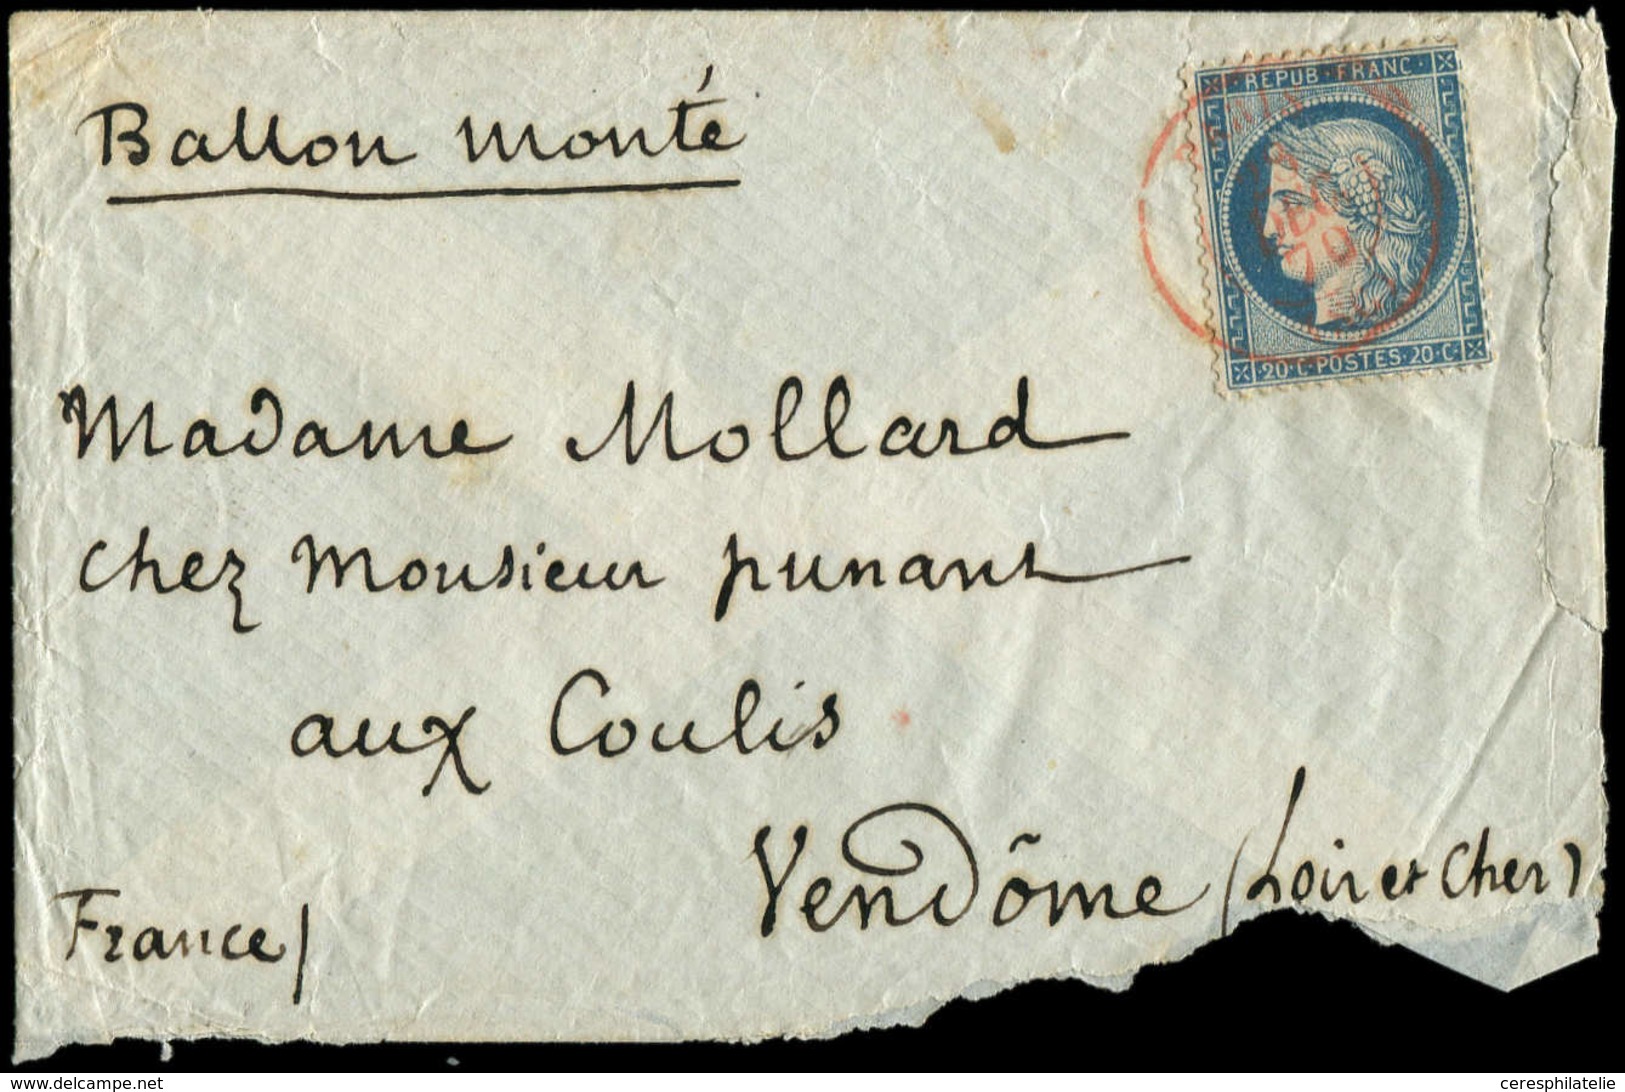 Ballon monté
REPUB · FRANC ·
DEC
70
20·C·POSTES·20·C·
Madame Mollard
chez Monsieur punant
aux Coulis
Vendôme (Loir et Cher)
France/
www.delcampe.net
ceresphilatelie